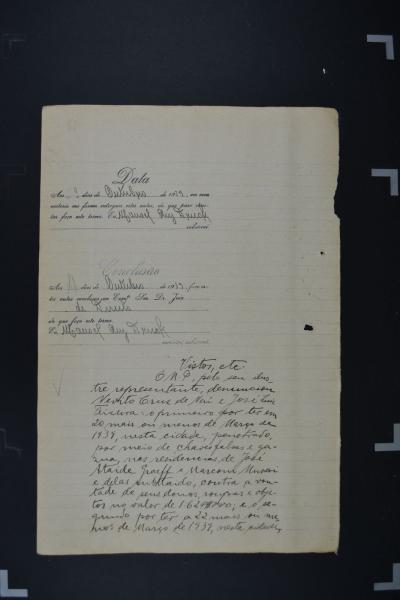 Data
Aos dias de Outubro de 1939, em meu
cartorio me foram entregues estes autos, do que para cons-
tar faço este termo. Eu Manoel Ruy
subscrevi
Conclusão
Aos dias de Outubro de 1939, faço es-
tes autos conclusos ao Exmo. Snr. Dr. Juiz
de Direito
do que faço este termo.
Eu Manoel Ruy
escrivão, subscrevi
Vistos, etc
O M.P., pelo seu ilus-
tre representante, denunciou
Nerito Cruz de e José Luiz
Teixeira: o primeiro por ter em
20 mais ou menos de Março de
1939, nesta cidade, penetrado,
por meio de chave falsa e ga-
zua, nas residencias de João
Graeff e Marconi
e delas subtraido, contra a von-
tade de seus donos, roupas e obje-
tos no valor de e o se-
gundo por ter a 22 mais ou me-
nos de Março de 1939, nesta cidade,